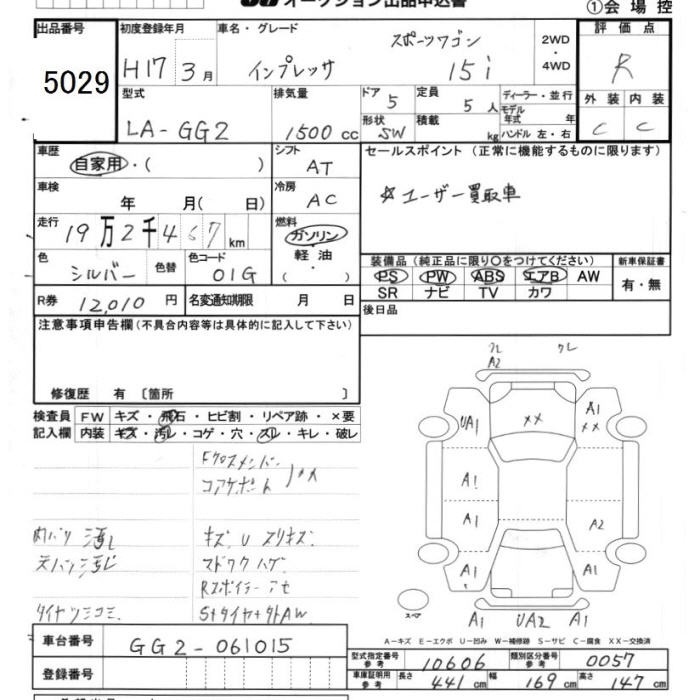 オークション出品申込書
①会場控
出品番号 5029
初度登録年月 H17 3月
車名・グレード インプレッサ スポーツワゴン 15i
2WD・4WD
評価点 R
外装 C 内装 C
型式 LA-GG2
排気量 1500cc
ドア 5
定員 5人
形状 SW
積載 kg
ディーラー・並行
モデル年式 年
ハンドル 左・右
車歴 自家用・( )
シフト AT
セールスポイント (正常に機能するものに限ります)
☆ユーザー買取車
車検 年 月(日)
冷房 AC
走行 19万2千467km
燃料 ガソリン 軽油・( )
色 シルバー 色替 色コード 01G
装備品(純正品に限り○をつけてください)
新車保証書 有・無
PS PW ABS エアB AW
SR ナビ TV カワ
R券 12,010円
名変通知期限 月 日
後日品
注意事項申告欄(不具合内容等は具体的に記入して下さい)
修復歴 有 〔箇所 〕
検査員記入欄
FW キズ・飛石・ヒビ割・リペア跡・×要
内装 キズ・汚レ・コゲ・穴・スレ・キレ・破レ
Fクロスメンバー
コアサポート XX
内バリ 汚レ
天バリ 汚レ
キズ、U スリキズ
マドワク ハゲ
Rスポイラー
タイヤ
クレ クレ
A2
UA1 XX A1 XX
A1
A1 A2
A1 A1
A1 UA2 A1
スペア
A-キズ E-エクボ U-凹み W-補修跡 S-サビ C-腐食 XX-交換済
車台番号 GG2-061015
登録番号
型式指定番号 参考 10606
類別区分番号 参考 0057
車庫証明用 参考 長さ 441cm 幅 169cm 高さ 147cm